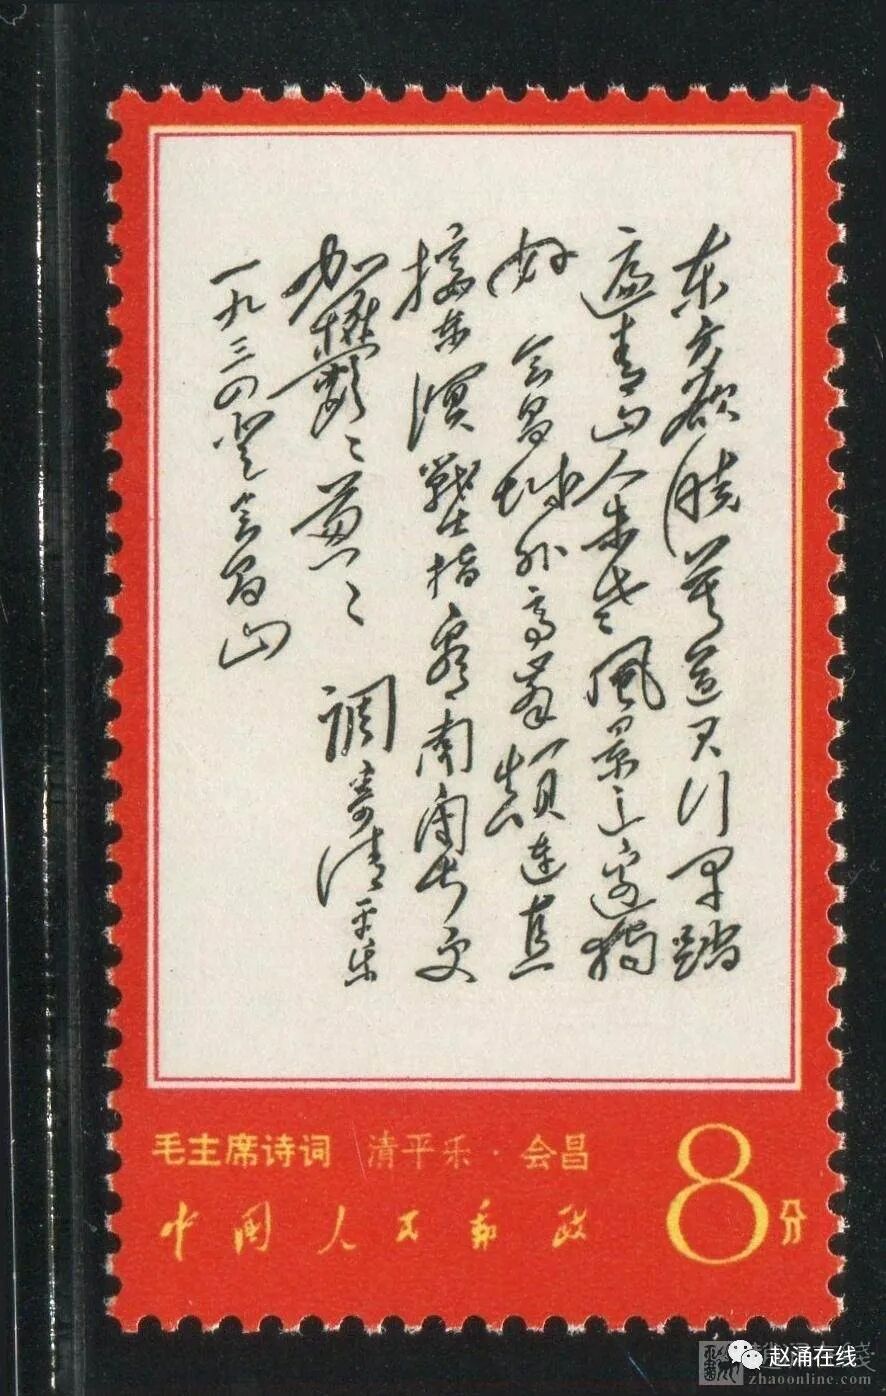 东方欲晓莫道君行早踏
遍青山人未老風景这边独
好 会昌城外高峯颠连直
接东溟戰士指看南粤更
加鬱々葱々 调寄清平乐
一九三四登会昌山
毛主席诗词 清平乐·会昌
中国人民邮政
8分
赵涌在线
zhaoonline.com